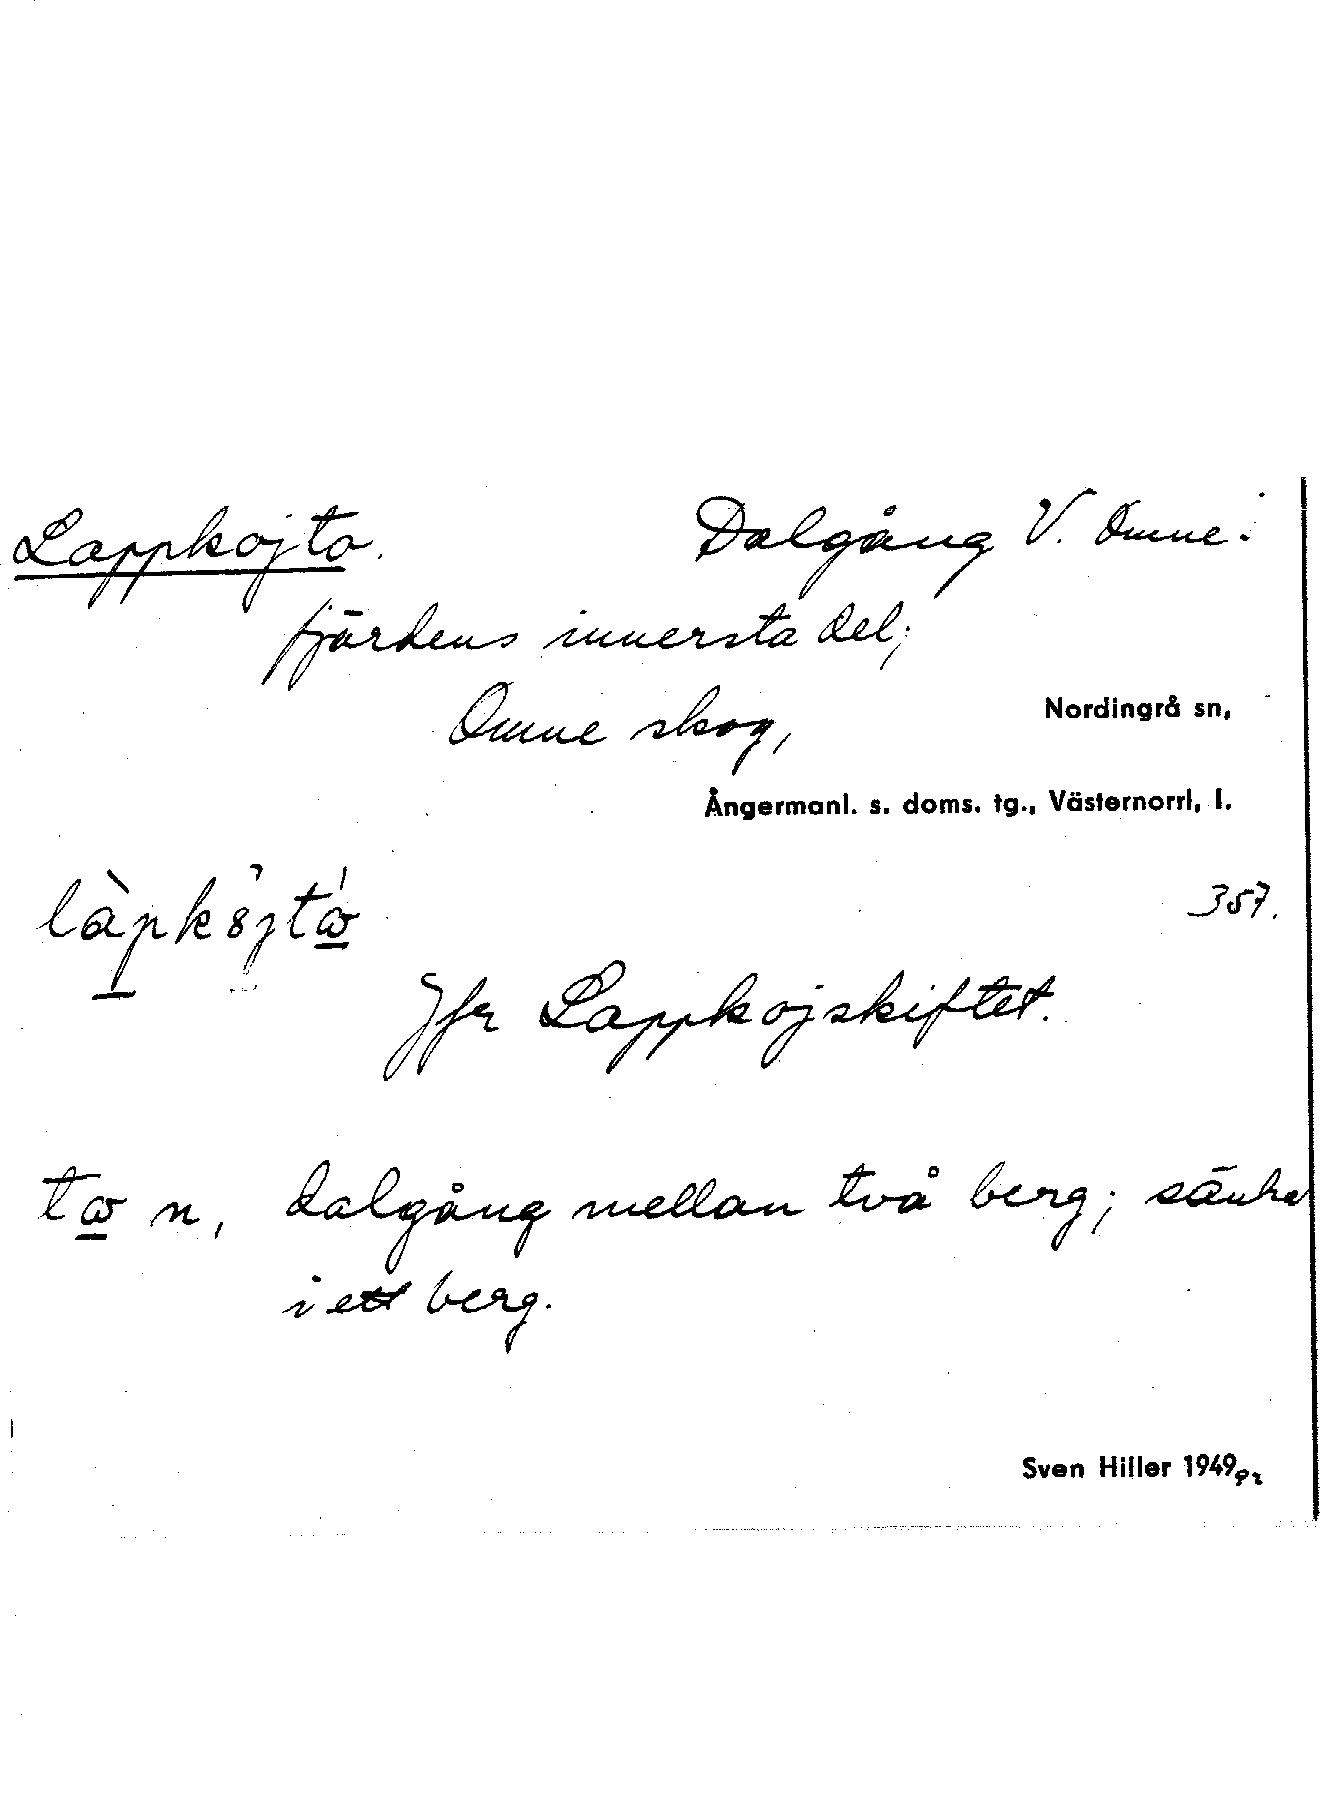 Lappkojto. Dalgång V. Omne-
fjärdens innersta del;
Omne skog,
Nordingrå sn,
Ångermanl. s. doms. tg., Västernorrl. l.
357.
Jfr Lappkojskiftet.
n, dalgång mellan två berg; sänka
i ett berg.
Sven Hiller 1949